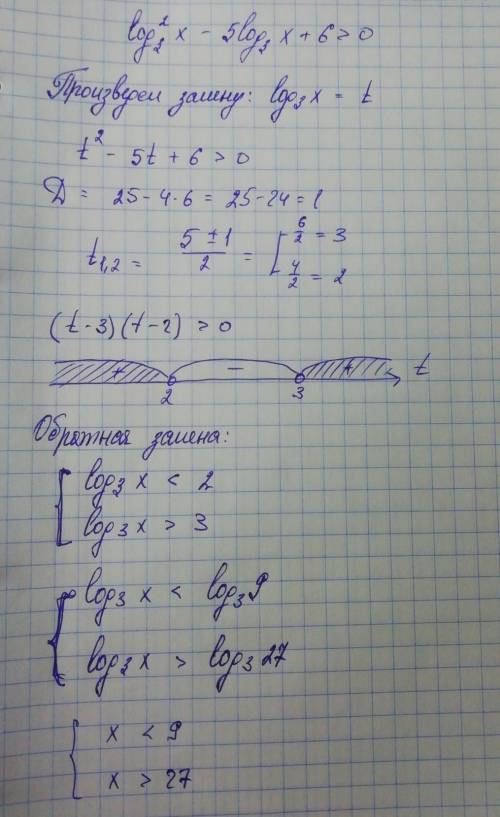 log₃² x - 5log₃ x + 6 > 0
Произведем замену: log₃ x = t
t² - 5t + 6 > 0
D = 25 - 4·6 = 25 - 24 = 1
t₁,₂ = (5 ± 1)/2 = [ 6/2 = 3
4/2 = 2
(t - 3)(t - 2) > 0
+ − + t
2 3
Обратная замена:
[ log₃ x < 2
log₃ x > 3
{ log₃ x < log₃ 9
log₃ x > log₃ 27
{ x < 9
x > 27